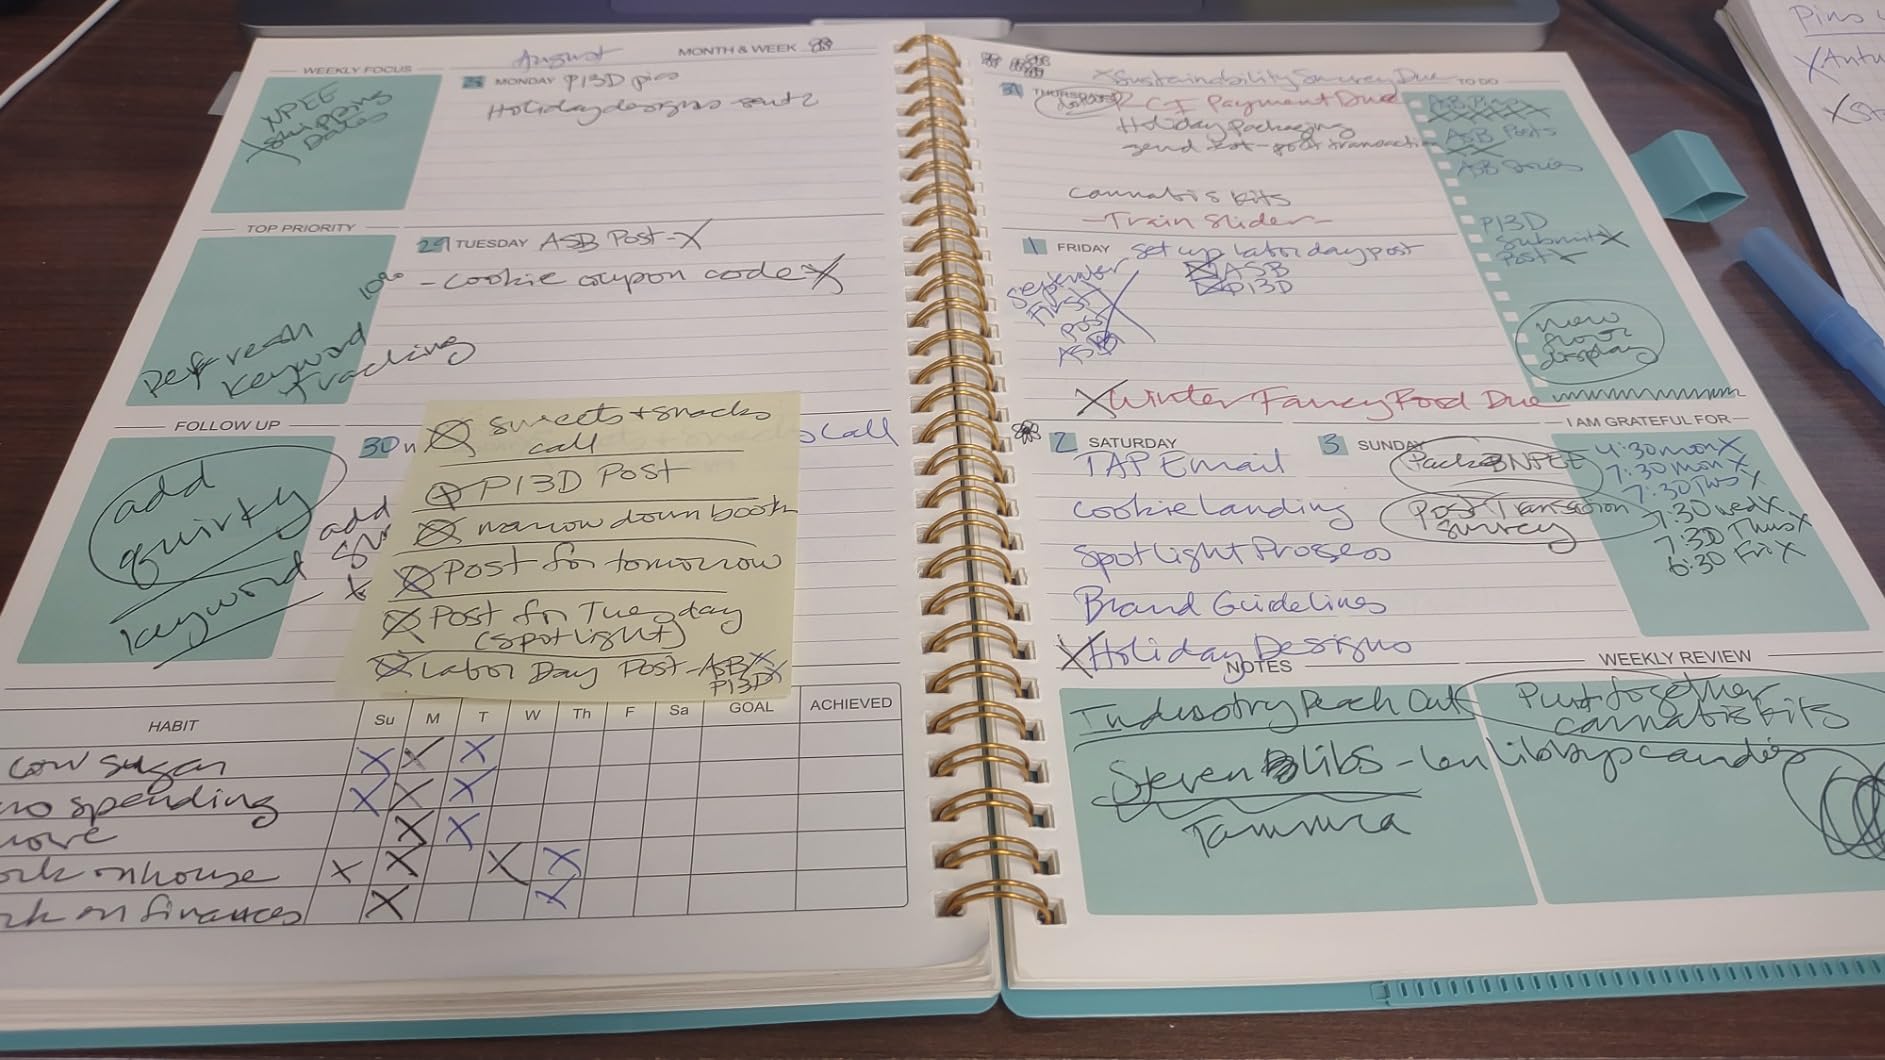 August
MONTH & WEEK
WEEKLY FOCUS
NPEE
Shipping
Dates
MONDAY P13D pics
Holiday designs sent?
TOP PRIORITY
Refresh
Keyword
Tracking
29 TUESDAY ASB Post-X
10%
- Cookie coupon code X
FOLLOW UP
add
quirky
keyword
30
Call
add
sweets + snacks
call
P13D Post
narrow down booth
Post for tomorrow
Post for Tuesday
(spotlight)
Labor Day Post - ASB X
P13D X
HABIT Su M T W Th F Sa GOAL ACHIEVED
low sugar X X X
no spending X X X
X X
on house X X X X
on finances X X
X Sustainability Survey Due
TO DO
31 THURSDAY
CF Payment Due
Holiday Packaging
send est - post transaction
Cannabis Kits
- Train Slider -
ASB Posts
ASB Stories
P13D
Submit X
Post X
new
floor
display
1 FRIDAY Set up labor day post
ASB
P13D
September
First
Post
ASB
X Winter Fancy Food Due
I AM GRATEFUL FOR
2 SATURDAY
TAP Email
Cookie Landing
Spotlight Process
Brand Guidelines
X Holiday Designs
3 SUNDAY
Pack NPEE
Post Transaction
Survey
4:30 mon X
7:30 mon X
7:30 Tues X
7:30 wed X
7:30 Thurs X
6:30 Fri X
NOTES
Industry Reach Out
Steven Libs - len libbys candies
Tammra
WEEKLY REVIEW
Put together
cannabis kits
Pins
X
X